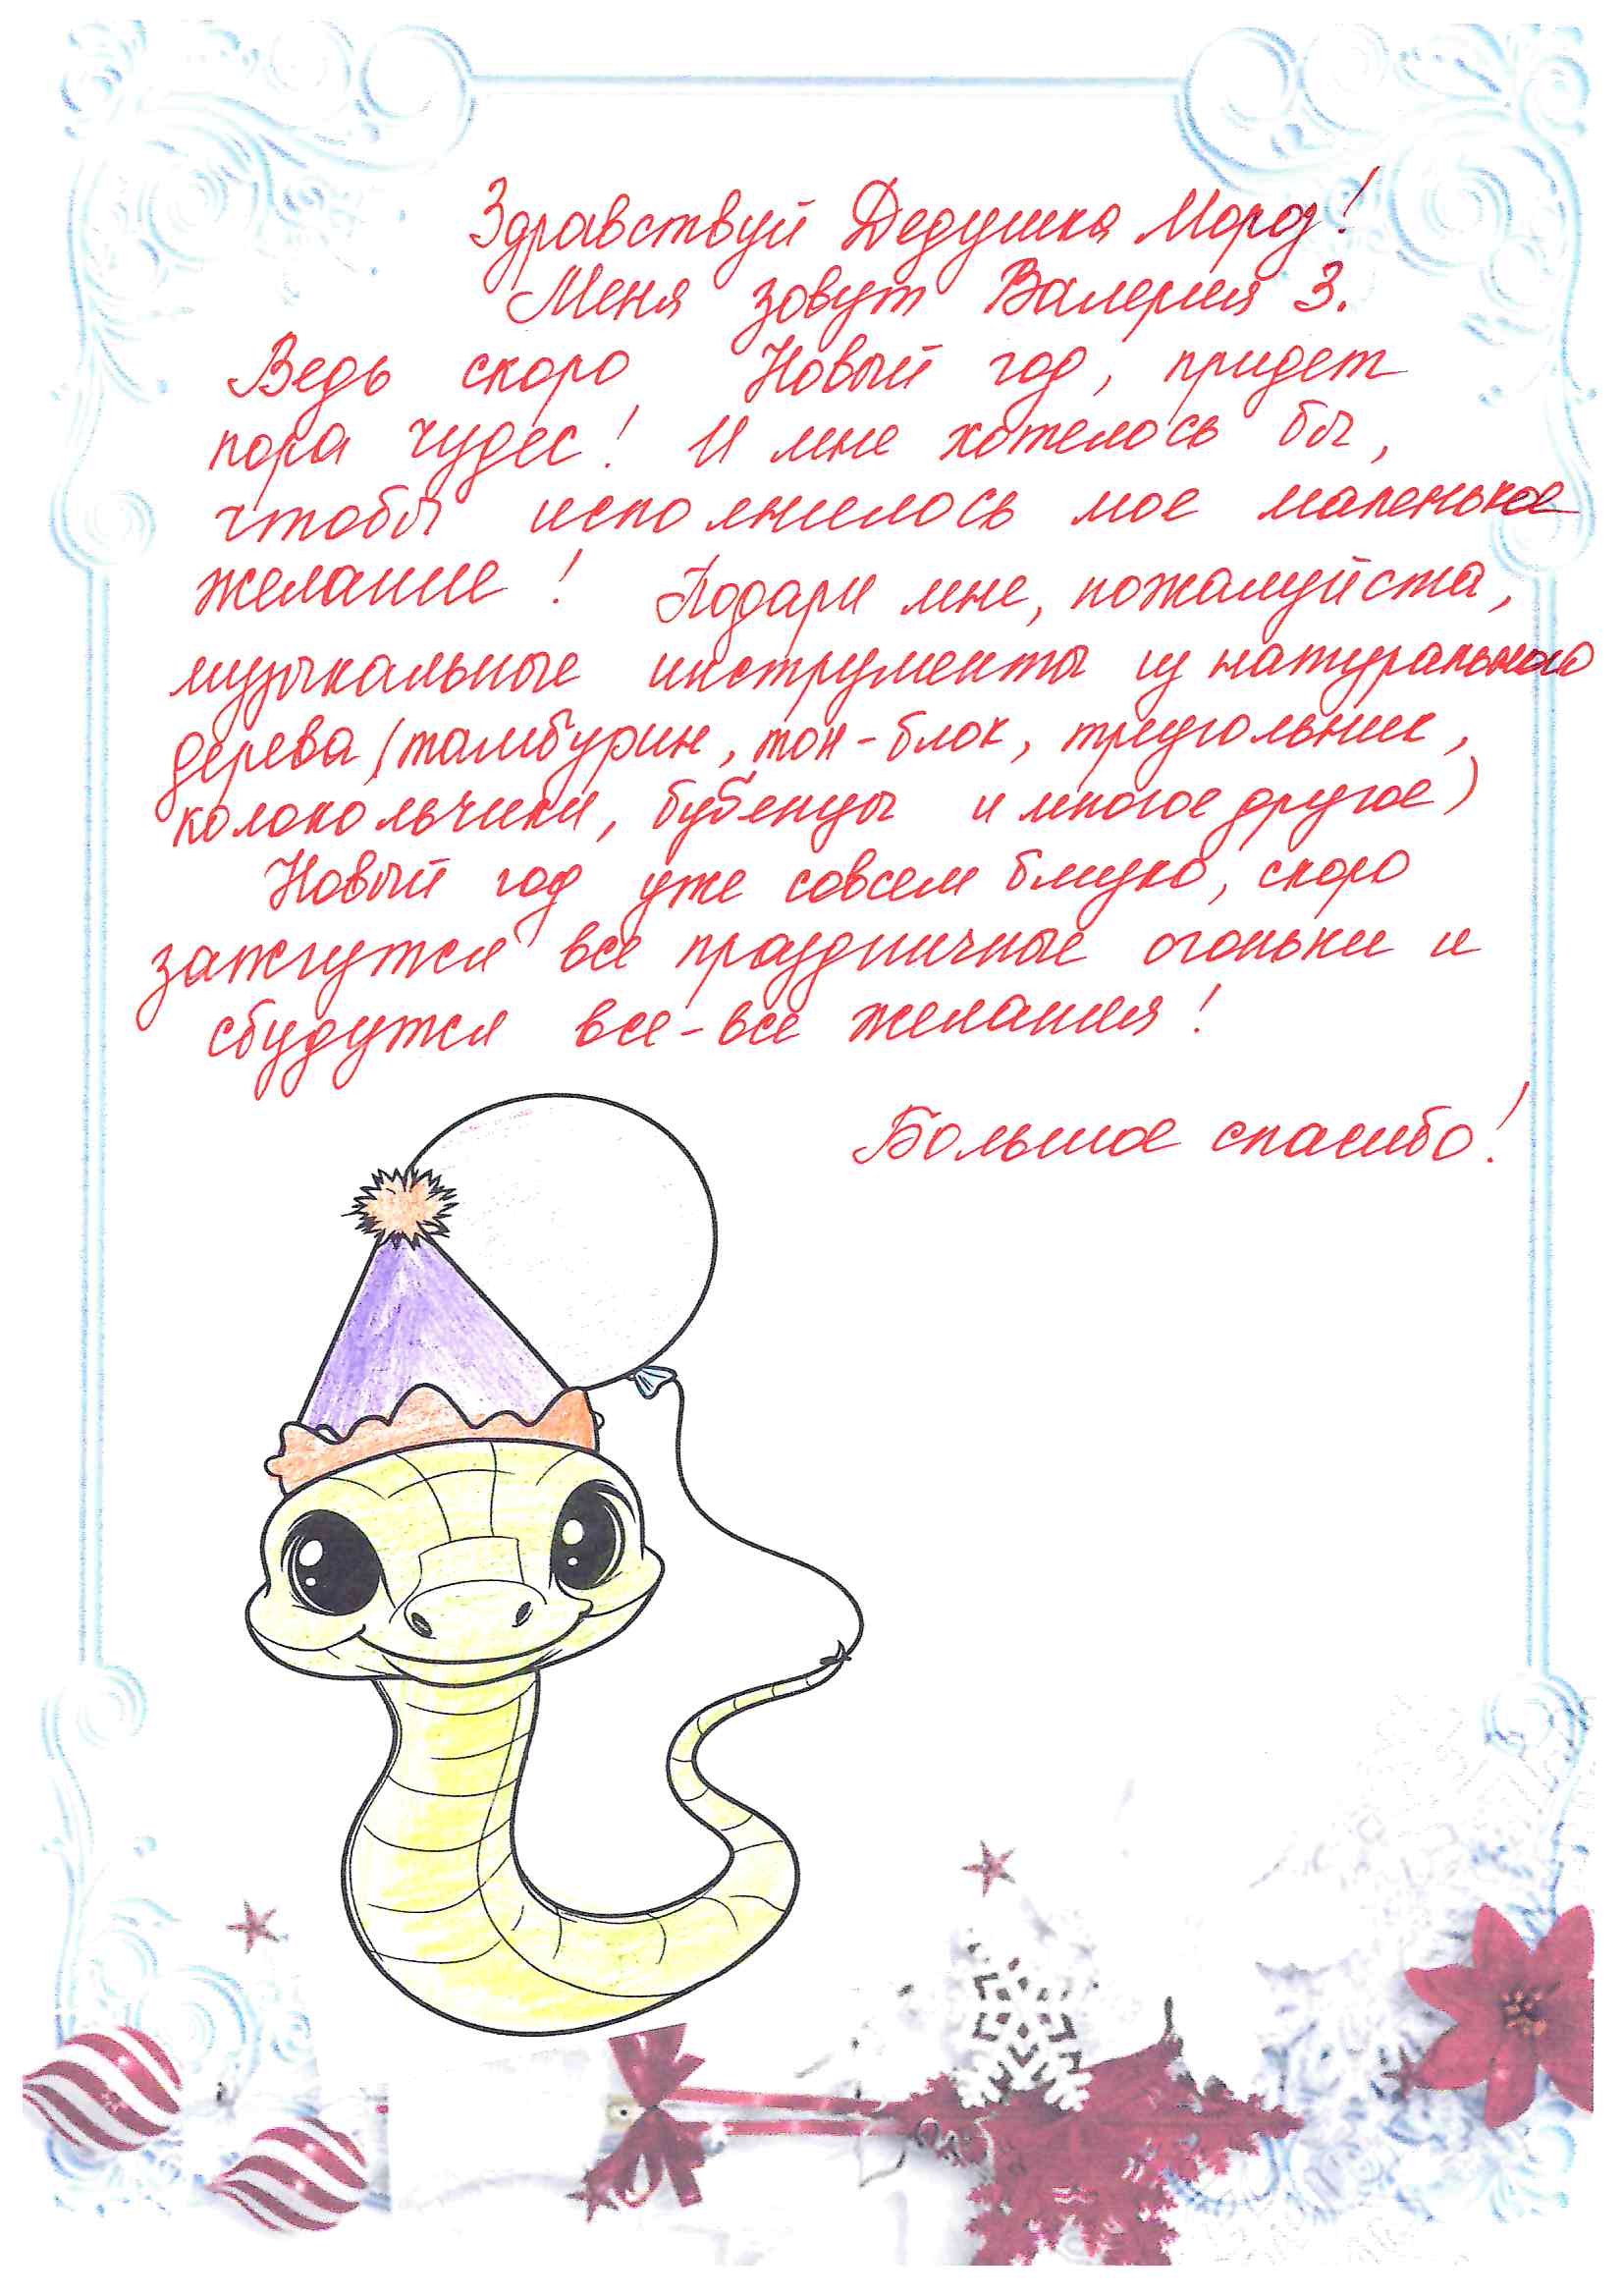 Здравствуй Дедушка Мороз!
Меня зовут Валерия З.
Ведь скоро Новый год, придет
пора чудес! И мне хотелось бы,
чтобы исполнилось мое маленькое
желание! Подари мне, пожалуйста,
музыкальные инструменты из натурального
дерева (тамбурин, тон-блок, треугольник,
колокольчики, бубенцы и многое другое)
Новый год уже совсем близко, скоро
зажгутся все праздничные огоньки и
сбудутся все-все желания!
Большое спасибо!